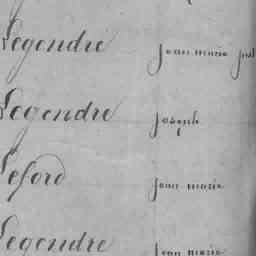 Legendre Jean marie
Legendre Joseph
Leford Jean marie
Legendre Jean marie